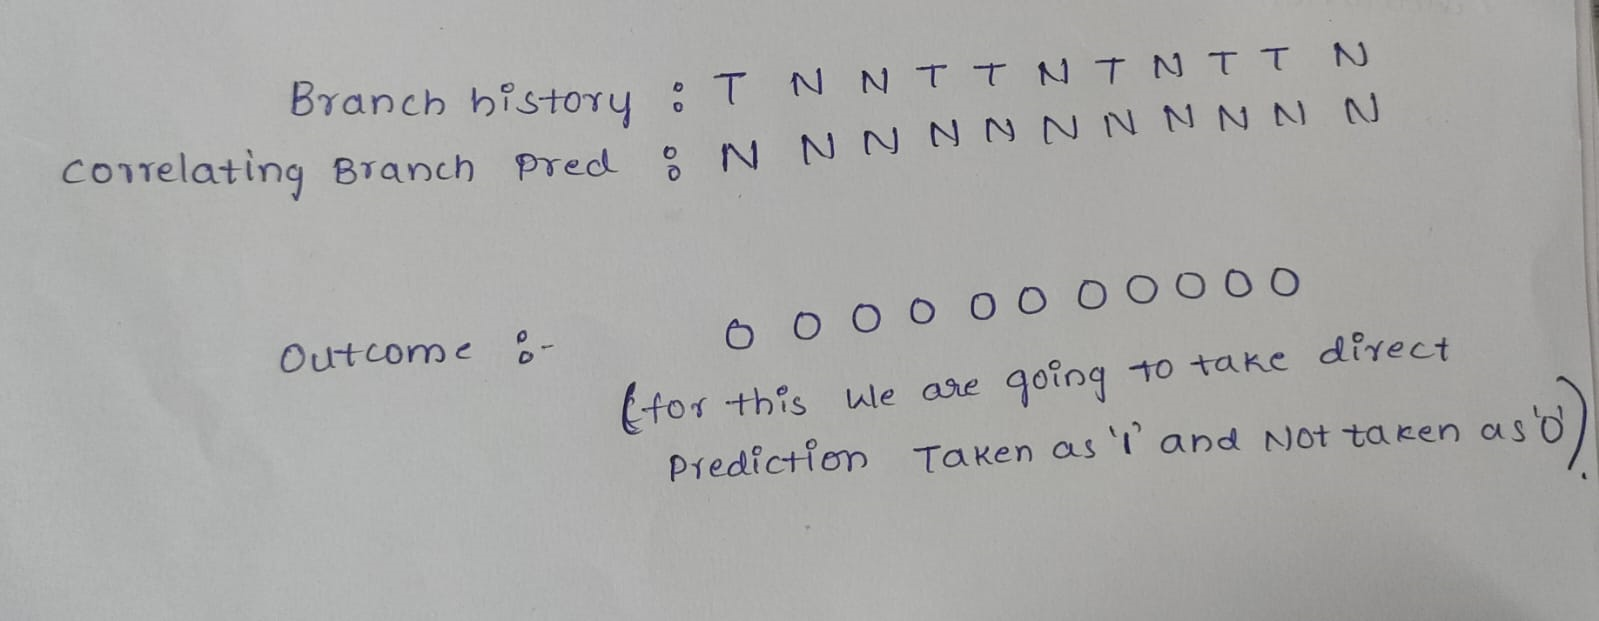 Branch history : T N N T T N T N T T N
Correlating Branch Pred : N N N N N N N N N N N
Outcome :- 0 0 0 0 0 0 0 0 0 0 0
(for this we are going to take direct
Prediction Taken as '1' and Not taken as '0').